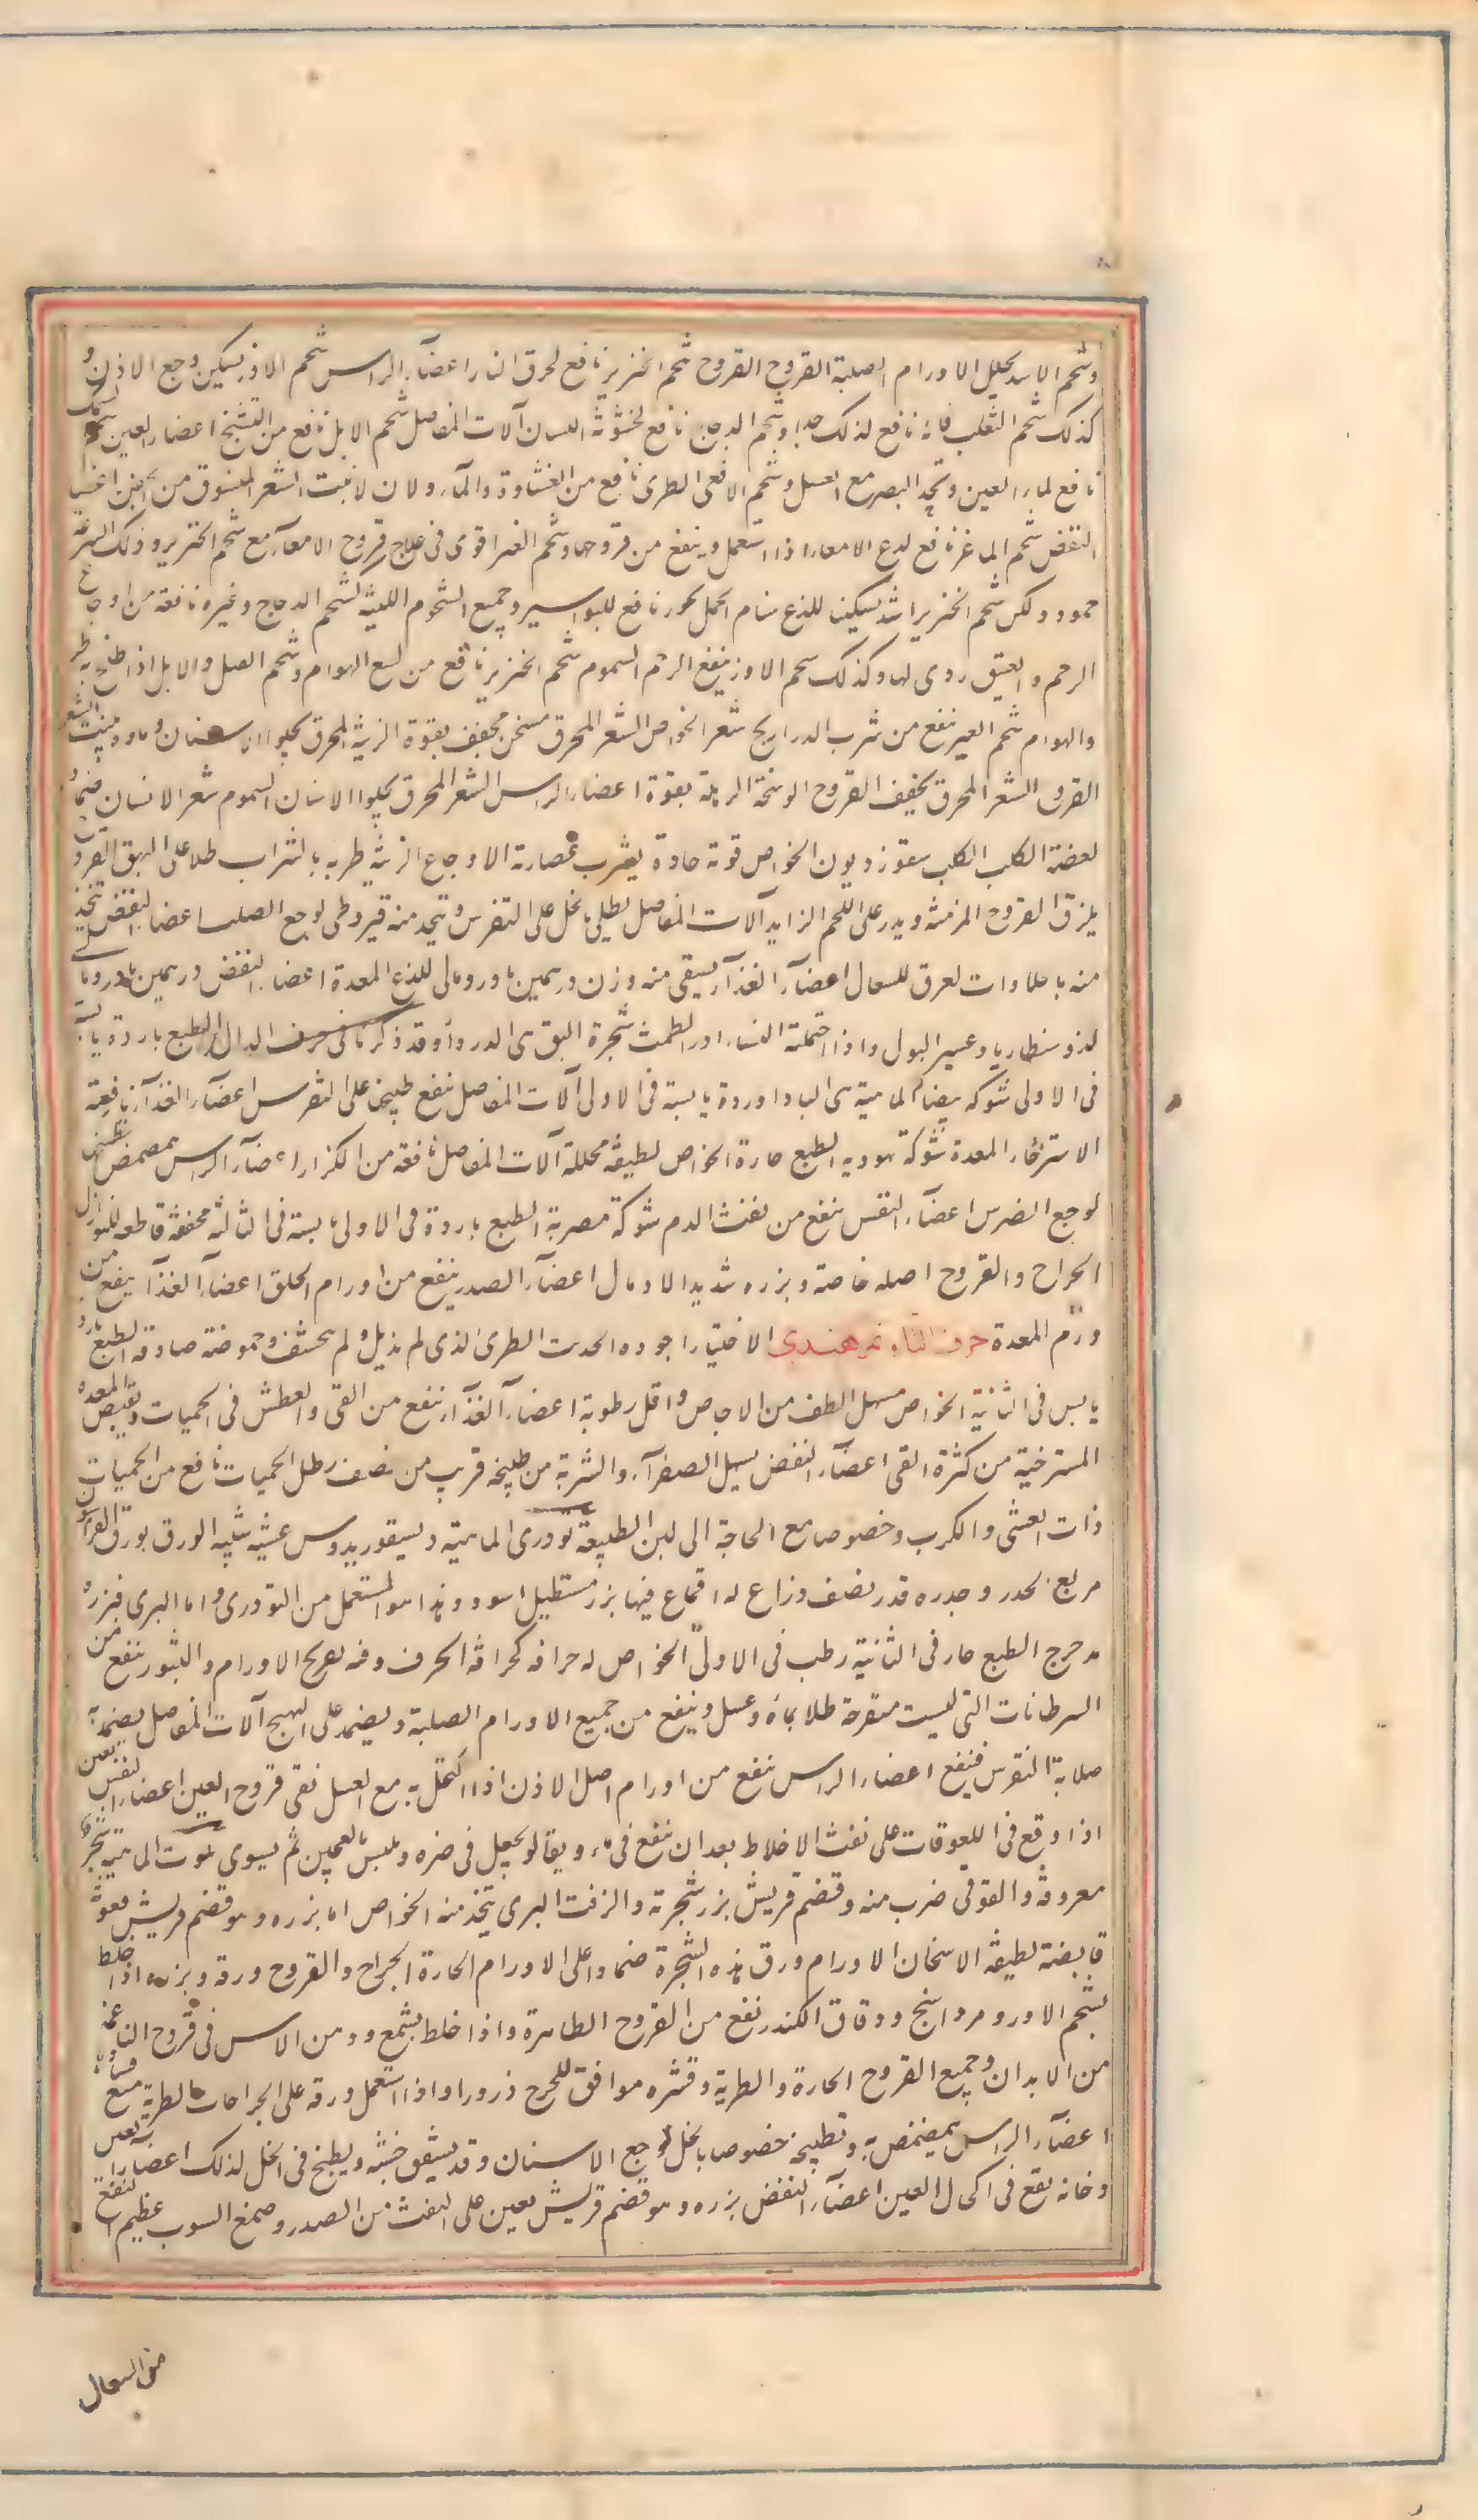 وشحم الاسد يحلل الاورام الصلبة القروح القروح شحم الخنزير نافع لحرق النار اعضآء الراس شحم الاوز يسكن وجع الاذن و
كذلك شحم الثعلب فانه نافع لذلك جدا وشحم الدجاج نافع لخشونة اللسان آلات المفاصل شحم الابل نافع من التشنج اعضاء العين شحم السمك
نافع لماء العين وتحد البصر مع العسل وشحم الافعى الطرى نافع من الغشاوة والمآء ولان لا ينبت الشعر المنتوف من الجفن اعضآ
النفض شحم الماعز نافع لدع الامعاء اذا استعمل وينفع من قروحها وشحم العنز اقوى فى علاج قروح الامعآء مع شحم الخنزير وذلك لسرعة
جموده ولكن شحم الخنزير اشد تسكينا للذع سنام الجمل بخور نافع للبواسير وجميع الشحوم اللينة لشحم الدجاج وغيره نافعة من اوجاع
الرحم والعتيق ردى لها وكذلك شحم الاوز ينفع الرحم السموم شحم الخنزير نافع من لسع الهوام وشحم الفيل والابل اذا طلخ به طرد
والهوام شحم العنز ينفع من شرب الدراريح شعر الخواص الشعر المحرق مسخن مجفف بقوة الزينة المحرق يجلوا الاسنان وماؤه ينبت الشعر
القروح الشعر المحرق يجفف القروح الوسخة الرهلة بقوة اعضاء الراس الشعر المحرق يجلوا الاسنان السموم شعر الانسان ضمادا
لعضة الكلب الكلب سقوزديون الخواص قوته حادة يشرب عصارته الاوجاع الزينة طريه بالشراب طلا على البهق القروح
يلزق القروح المزمنة ويذر على اللحم الزايد آلات المفاصل يطلى بالخل على النقرس ويتخذ منه قيروطى لوجع الصلب اعضا النفض يتخذ
منه باحلاوات لعوق للسعال اعضآء الغذآء يسقى منه وزن درهمين بادرومالى للذع المعدة اعضا النفض درهمين بادرومالى
لذوسنطاريا وعسير البول واذا احتملته النساء ادر الطمث شجرة البق هى الدردار وقد ذكرنا فى حرف الدال الطبع باردة يابسة
فى الاولى شوكة بيضاء الماهية هى الباداورد يابسة فى الاولى آلات المفاصل ينفع طبيخها على النقرس اعضآء الغذآء نافعة
الاسترخاء المعدة شوكة يهودية الطبع حارة الخواص لطيفة محللة آلات المفاصل نافعة من الكزاز اعضآء الراس يمضمض بطبيخها
لوجع الضرس اعضآء النفس ينفع من نفث الدم شوكة مصرية الطبع باردة فى الاولى يابسة فى الثالثة مجففة قاطعة للنوازل
الجراح والقروح اصله خاصة وبزره شديد الادمال اعضآء الصدر ينفع من اورام الحلق اعضآء الغذآ ينفع من
ورم المعدة حرف التاء تمر هندى الاختيار اجوده الحديث الطرى الذى لم يذبل ولم يحشف وحموضته صادقة الطبع بارد
يابس فى الثانية الخواص مسهل الطف من الاجاص واقل رطوبة اعضآء الغذآء ينفع من القى والعطش فى الحميات ويقبض المعدة
المسترخية من كثرة القى اعضآء النفض يسهل الصفرآء والشربة من طبيخه قريب من نصف رطل الحميات نافع من الحميات
ذات الغشى والكرب وخصوصا مع الحاجة الى لين الطبيعة تودرى الماهية ديسقوريدوس عشبة شبيه الورق بورق الفراسيون
مربع الجذر وجذره قدر نصف ذراع له اقماع فيها بزر مستطيل اسود وهذا هو المستعمل من التودرى واما البرى فبزره
مدحرج الطبع حار فى الثانية رطب فى الاولى الخواص له حرافة كحرافة الحرف وفيه تفريح الاورام والبثور ينفع من
السرطانات التى ليست متقرحة طلا بماء وعسل وينفع من جميع الاورام الصلبة ويضمد على الهيج آلات المفاصل يضمد به
صلابة النقرس فينفع اعضاء الراس ينفع من اورام اصل الاذن اذا اكتحل به مع العسل نقى قروح العين اعضاء النفس يعين
اذا وقع فى اللعوقات على نفث الاخلاط بعد ان ينقع فى ماء ويقالو يجعل فى صره ويلبس بالعجين ثم يشوى تنوت الماهية شجرة
معروفة والقوفى ضرب منه وقضم قريش بزر شجرته والزفت البرى يتخذ منه الخواص اما بزره وهو قضم قريش فقوته
قابضة لطيفة الاسخان الاورام ورق هذه الشجرة ضمادا على الاورام الحارة الجراح والقروح ورقه وبزره اذا خلط
بشحم الاوز ومرداسنج ودقاق الكندر نفع من القروح الظاهرة واذا خلط بشمع ودهن الاس فى قروح الناعمة
من الابدان وجميع القروح الحارة والطرية وقشره موافق للجرح ذرورا واذا استعمل ورقه على الجراحات الطرية منع فسادها
اعضآء الراس يمضمض به وبطبيخه خصوصا بالخل لوجع الاسنان وقد يشقق خشبه ويطبخ فى الخل لذلك اعضاء العين
دخانه يقع فى اكحال العين اعضآء النفض بزره وهو قضم قريش يعين على النفث من الصدر وصمغ السوب عظيم النفع
من السعال